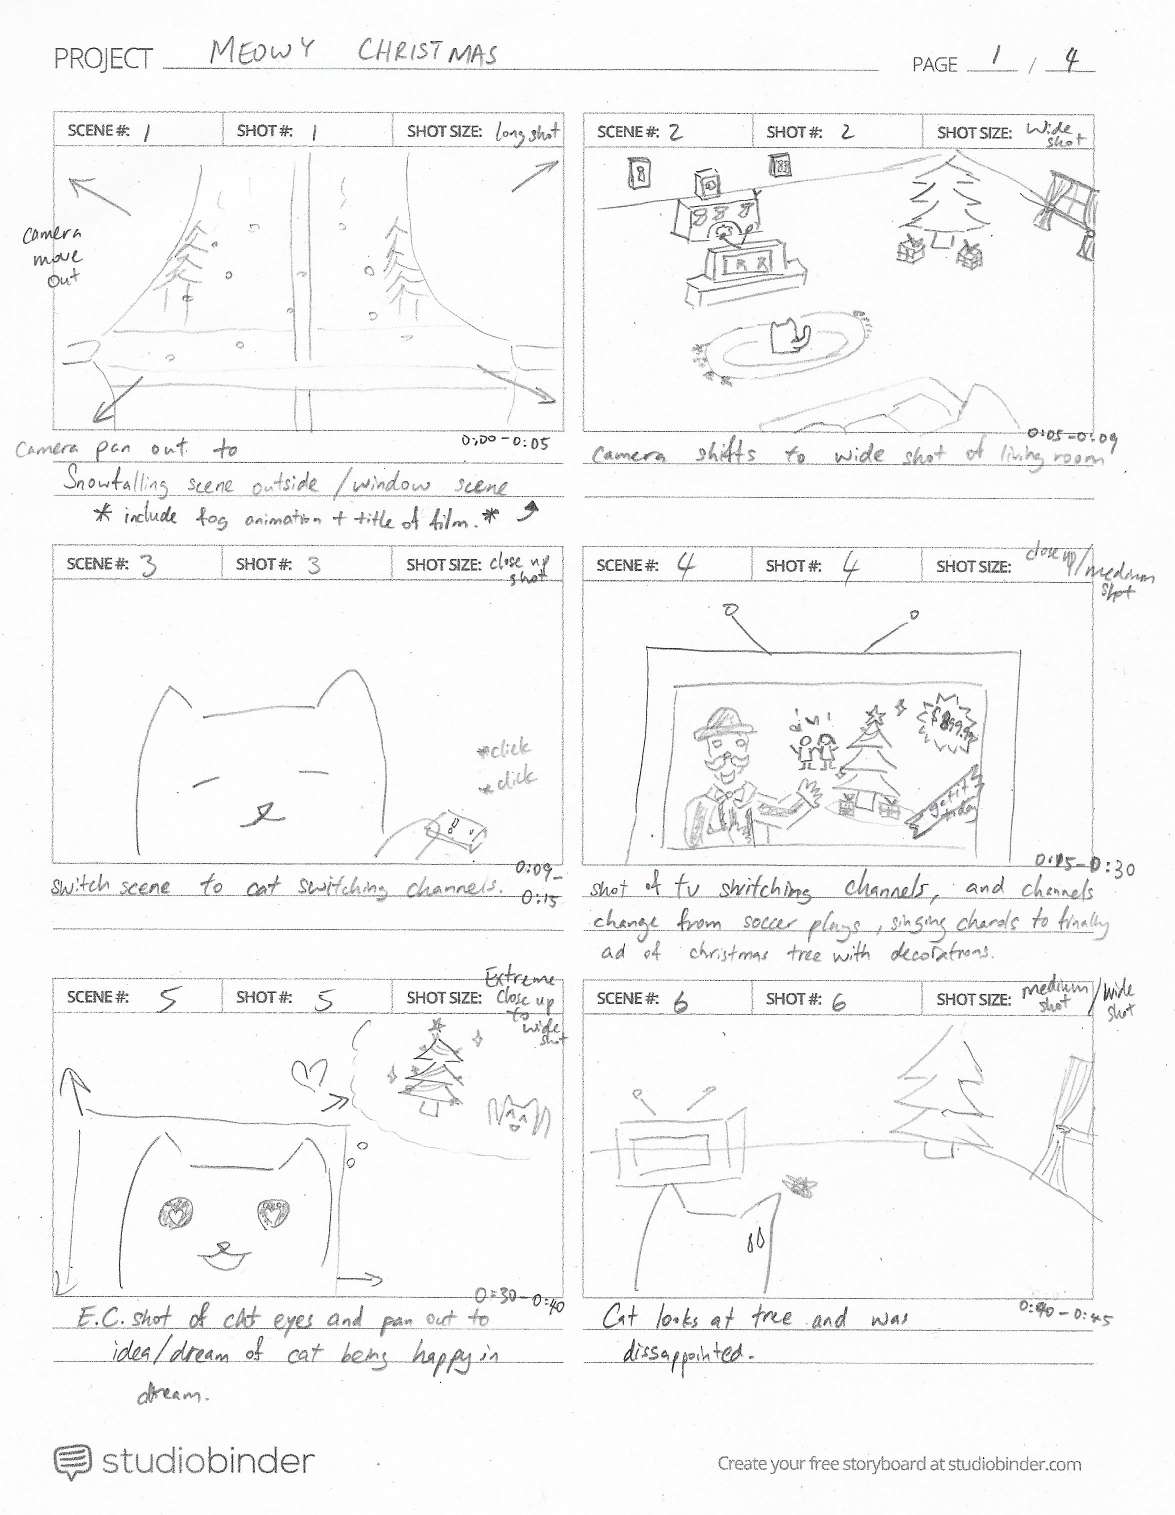 PROJECT MEOWY CHRISTMAS
PAGE 1 / 4
SCENE #: 1 SHOT #: 1 SHOT SIZE: long shot
camera
move
out
0:00-0:05
Camera pan out to
Snowfalling scene outside/window scene
* include fog animation + title of film. *
SCENE #: 2 SHOT #: 2 SHOT SIZE: Wide
shot
0:05-0:09
Camera shifts to wide shot of living room
SCENE #: 3 SHOT #: 3 SHOT SIZE: close up
shot
*click
*click
0:09-
0:15
switch scene to cat switching channels.
SCENE #: 4 SHOT #: 4 SHOT SIZE: close up/medium
shot
get it
today
0:15-0:30
shot of tv switching channels, and channels
change from soccer plays, singing charols to finally
ad of christmas tree with decorations.
SCENE #: 5 SHOT #: 5 SHOT SIZE: Extreme
close up
to
wide
shot
0:30-0:40
E.C. shot of cat eyes and pan out to
idea/dream of cat being happy in
dream.
SCENE #: 6 SHOT #: 6 SHOT SIZE: medium
shot/wide
shot
0:40-0:45
Cat looks at tree and was
dissappointed.
studiobinder
Create your free storyboard at studiobinder.com